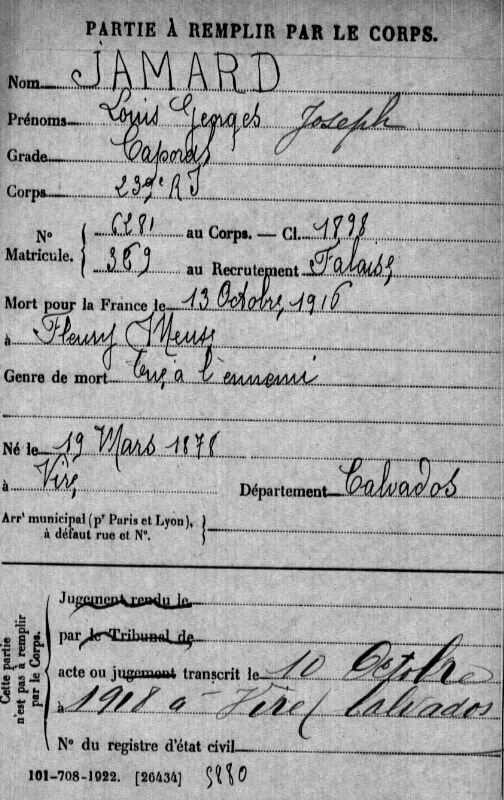 PARTIE À REMPLIR PAR LE CORPS.
Nom JAMARD
Prénoms Louis Georges Joseph
Grade Caporal
Corps 239e R I
N° Matricule. { 6281 au Corps. — Cl. 1898
369 au Recrutement Falaise
Mort pour la France le 13 Octobre 1916
à Fleury Meuse
Genre de mort Tué à l'ennemi
Né le 19 Mars 1878
à Vire Département Calvados
Arrt municipal (pr Paris et Lyon), à défaut rue et N°. }
Cette partie n'est pas à remplir par le Corps.
Jugement rendu le
par le Tribunal de
acte ou jugement transcrit le 10 Octobre
à 1918 à Vire (Calvados
N° du registre d'état civil
101-708-1922. [26434] 5880